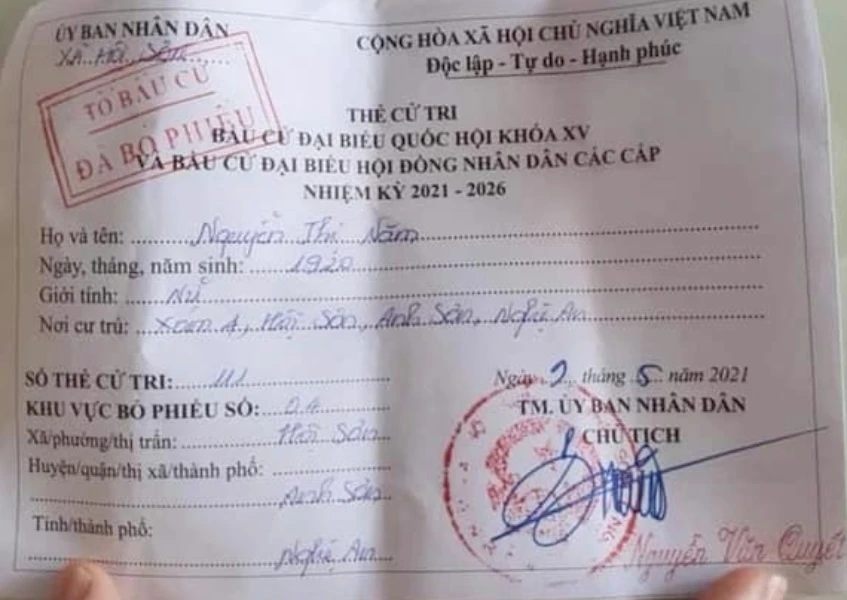 ỦY BAN NHÂN DÂN
XÃ Hội Sơn
CỘNG HÒA XÃ HỘI CHỦ NGHĨA VIỆT NAM
Độc lập - Tự do - Hạnh phúc
TỔ BẦU CỬ
ĐÃ BỎ PHIẾU
THẺ CỬ TRI
BẦU CỬ ĐẠI BIỂU QUỐC HỘI KHÓA XV
VÀ BẦU CỬ ĐẠI BIỂU HỘI ĐỒNG NHÂN DÂN CÁC CẤP
NHIỆM KỲ 2021 - 2026
Họ và tên: Nguyễn Thị Năm
Ngày, tháng, năm sinh: 1920
Giới tính: Nữ
Nơi cư trú: Xóm 4, Hội Sơn, Anh Sơn, Nghệ An
SỐ THẺ CỬ TRI: 111
KHU VỰC BỎ PHIẾU SỐ: 04
Xã/phường/thị trấn: Hội Sơn
Huyện/quận/thị xã/thành phố:
Anh Sơn
Tỉnh/thành phố:
Nghệ An
Ngày 2 tháng 5 năm 2021
TM. ỦY BAN NHÂN DÂN
CHỦ TỊCH
Nguyễn Văn Quyết